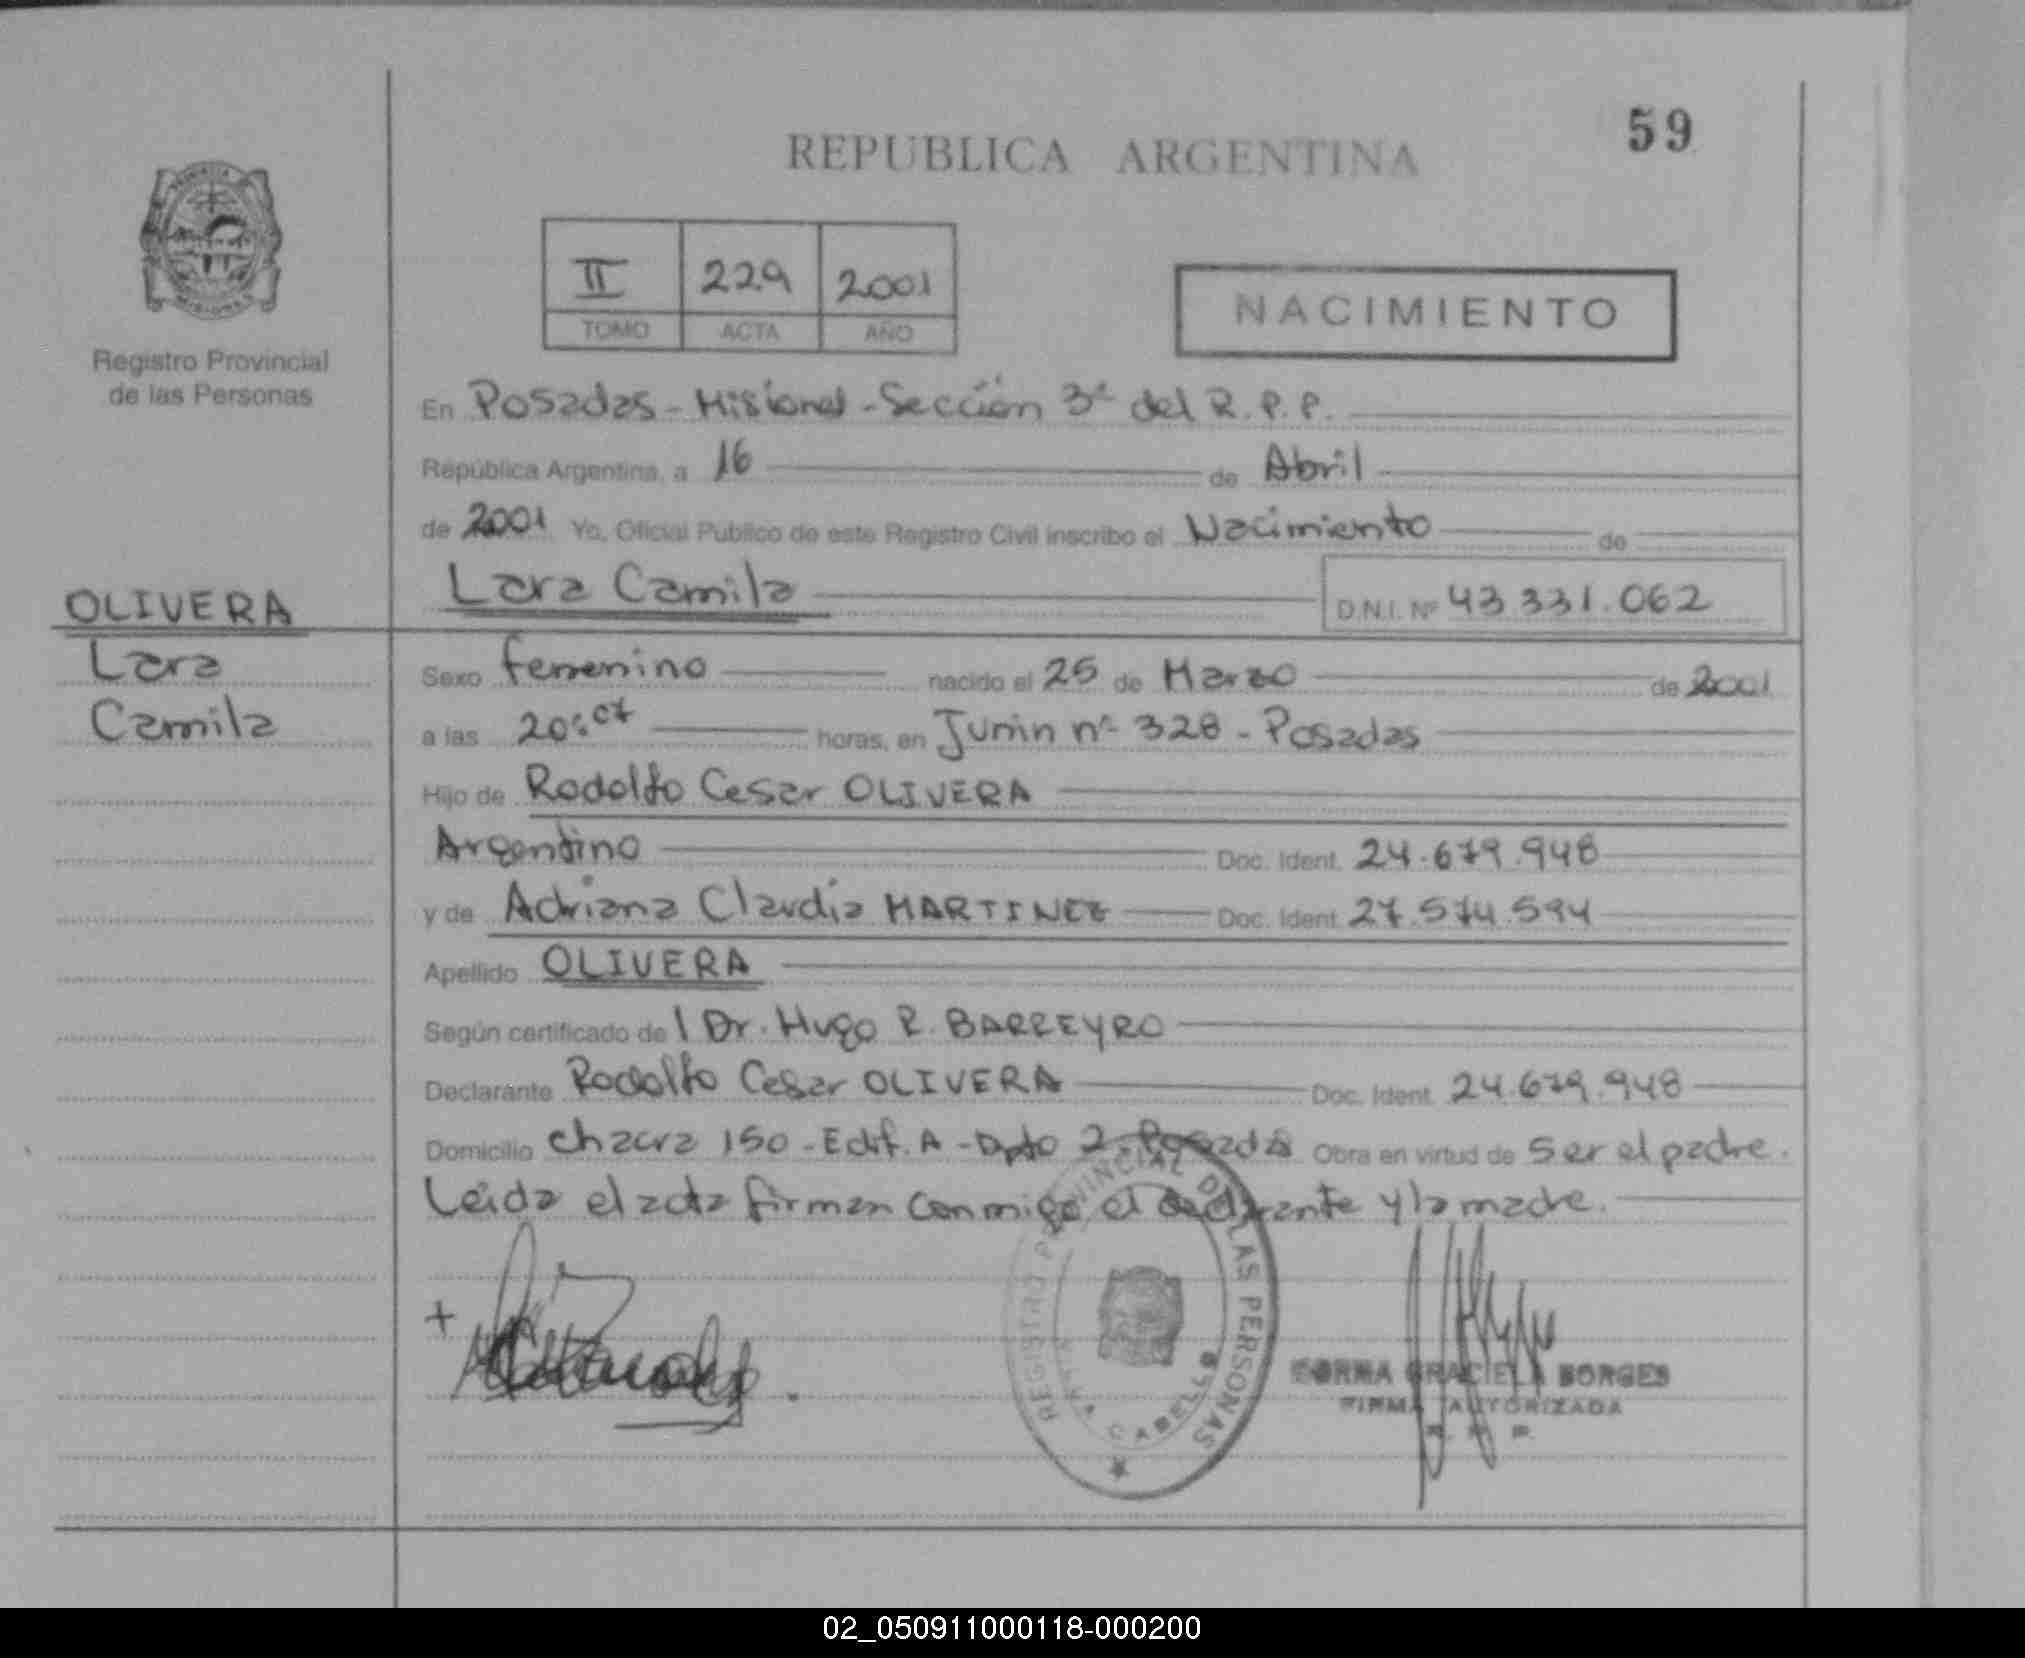 59
REPUBLICA ARGENTINA
II 229 2001
TOMO ACTA AÑO
NACIMIENTO
Registro Provincial
de las Personas
En Posadas - Misiones - Sección 3ª del R.P.P.
República Argentina, a 16 de Abril
de 2001 Yo, Oficial Público de este Registro Civil inscribo el Nacimiento de
Lara Camila D.N.I. Nº 43.331.062
OLIVERA
Lara
Camila
Sexo femenino nacido el 25 de Marzo de 2001
a las horas, en Junin nº 328 - Posadas
Hijo de Rodolfo Cesar OLIVERA
Argentino Doc. Ident. 24.679.948
y de Adriana Claudia MARTINEZ Doc. Ident. 27.574.594
Apellido OLIVERA
Según certificado de l Dr. Hugo R. BARREYRO
Declarante Rodolfo Cesar OLIVERA Doc. Ident. 24.679.948
Domicilio Chacra 150 - Edif. A - Dpto 2 - Posadas Obra en virtud de ser el padre.
Leída el acta firman conmigo el declarante y la madre.
REGISTRO PROVINCIAL DE LAS PERSONAS
VILLA CABELLO
GRACIELA BORGES
FIRMA AUTORIZADA
R. P. P.
02_050911000118-000200